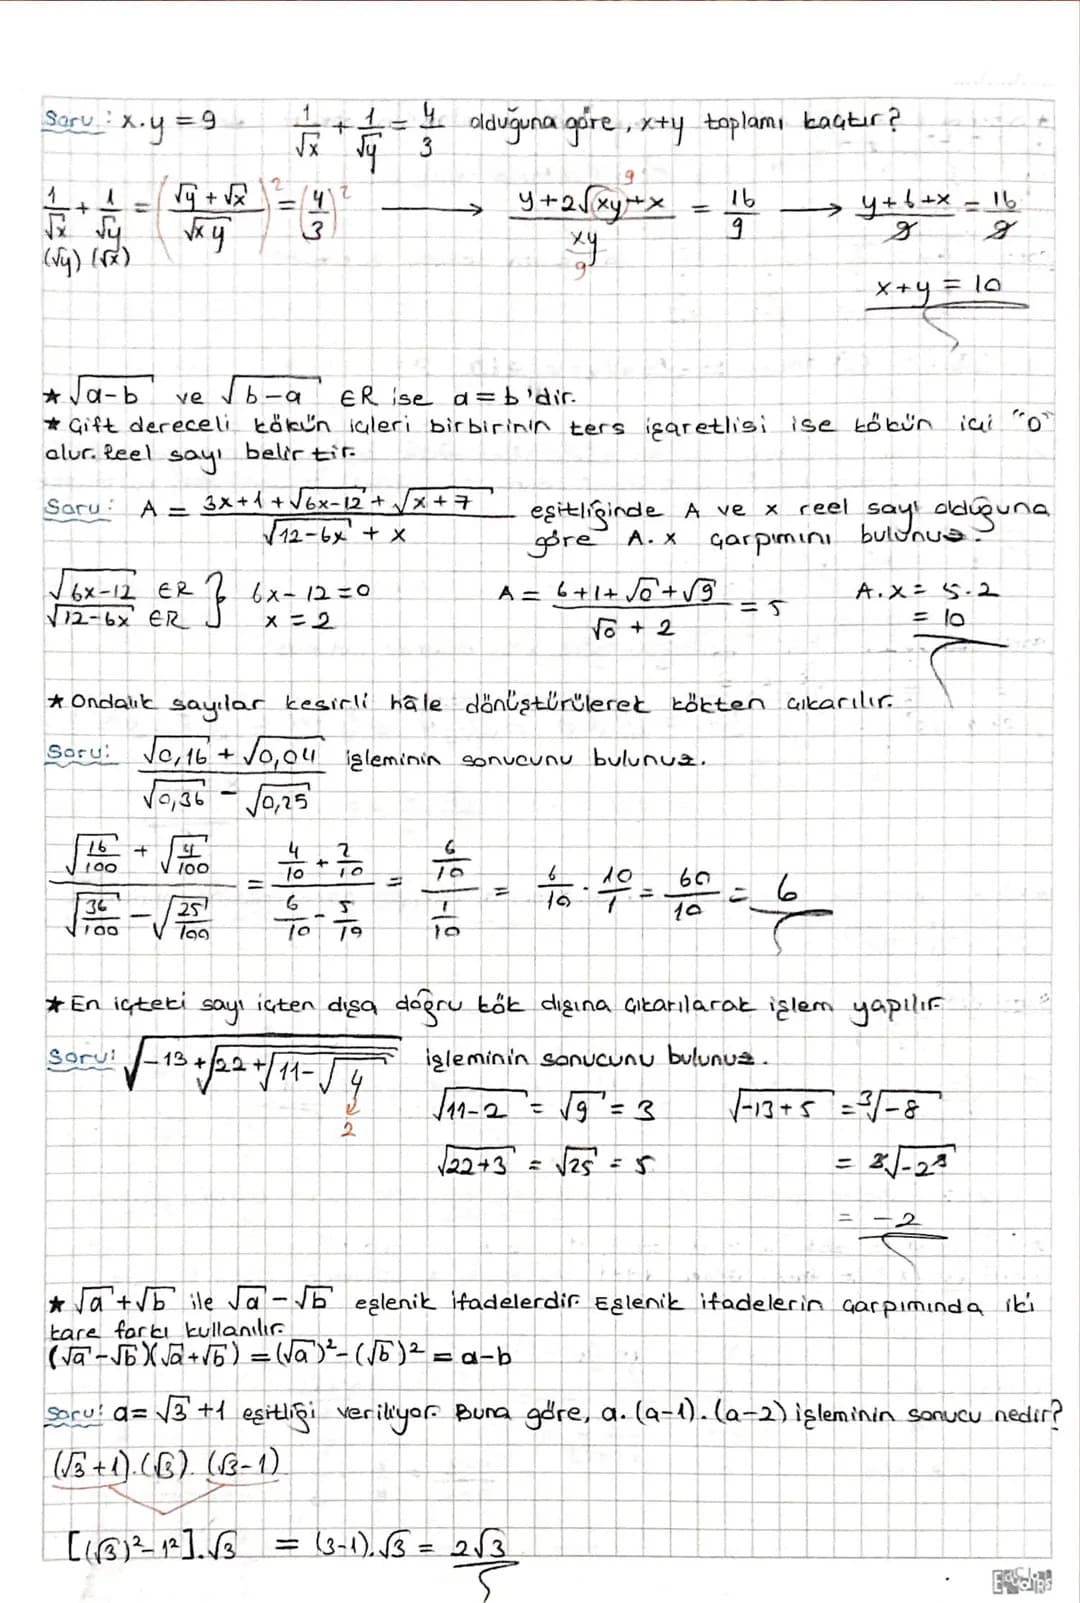 Soru: x.y = 9   1/√x + 1/√y = 4/3 olduğuna göre, x+y toplamı kaçtır?
1/√x + 1/√y = ((√y + √x)/√xy)² = (4/3)² → (y+2√xy+x)/xy = 16/9 → (y+6+x)/9 = 16/9
(√y) (√x)   9   9
x+y = 10
★ √a-b ve √b-a ∈R ise a=b'dir.
★ Çift dereceli kökün içleri birbirinin ters işaretlisi ise kökün içi "0"
olur. Reel sayı belirtir.
Soru: A = (3x+1+√6x-12 + √x+7)/(√12-6x + x) eşitliğinde A ve x reel sayı olduğuna
göre A.x çarpımını bulunuz.
√6x-12 ∈R } 6x-12=0   A = (6+1+√0+√9)/(√0 + 2) = 5   A.x = 5.2
√12-6x ∈R   x = 2   = 10
★ Ondalık sayılar kesirli hâle dönüştürülerek kökten çıkarılır.
Soru: (√0,16 + √0,04)/(√0,36 - √0,25) işleminin sonucunu bulunuz.
(√16/100 + √4/100)/(√36/100 - √25/100) = (4/10 + 2/10)/(6/10 - 5/10) = (6/10)/(1/10) = 6/10 . 10/1 = 60/10 = 6
★ En içteki sayı içten dışa doğru kök dışına çıkarılarak işlem yapılır.
Soru: √-13+√22+√11-√4 işleminin sonucunu bulunuz.
2   √11-2 = √9 = 3   √-13+5 = ³√-8
√22+3 = √25 = 5   = ³√-2³
= -2
★ √a+√b ile √a-√b eşlenik ifadelerdir. Eşlenik ifadelerin çarpımında iki
kare farkı kullanılır.
(√a-√b)(√a+√b) = (√a)²-(√b)² = a-b
Soru: a= √3+1 eşitliği veriliyor. Buna göre, a.(a-1).(a-2) işleminin sonucu nedir?
(√3+1).(√3).(√3-1)
[(√3)²-1²].√3 = (3-1).√3 = 2√3